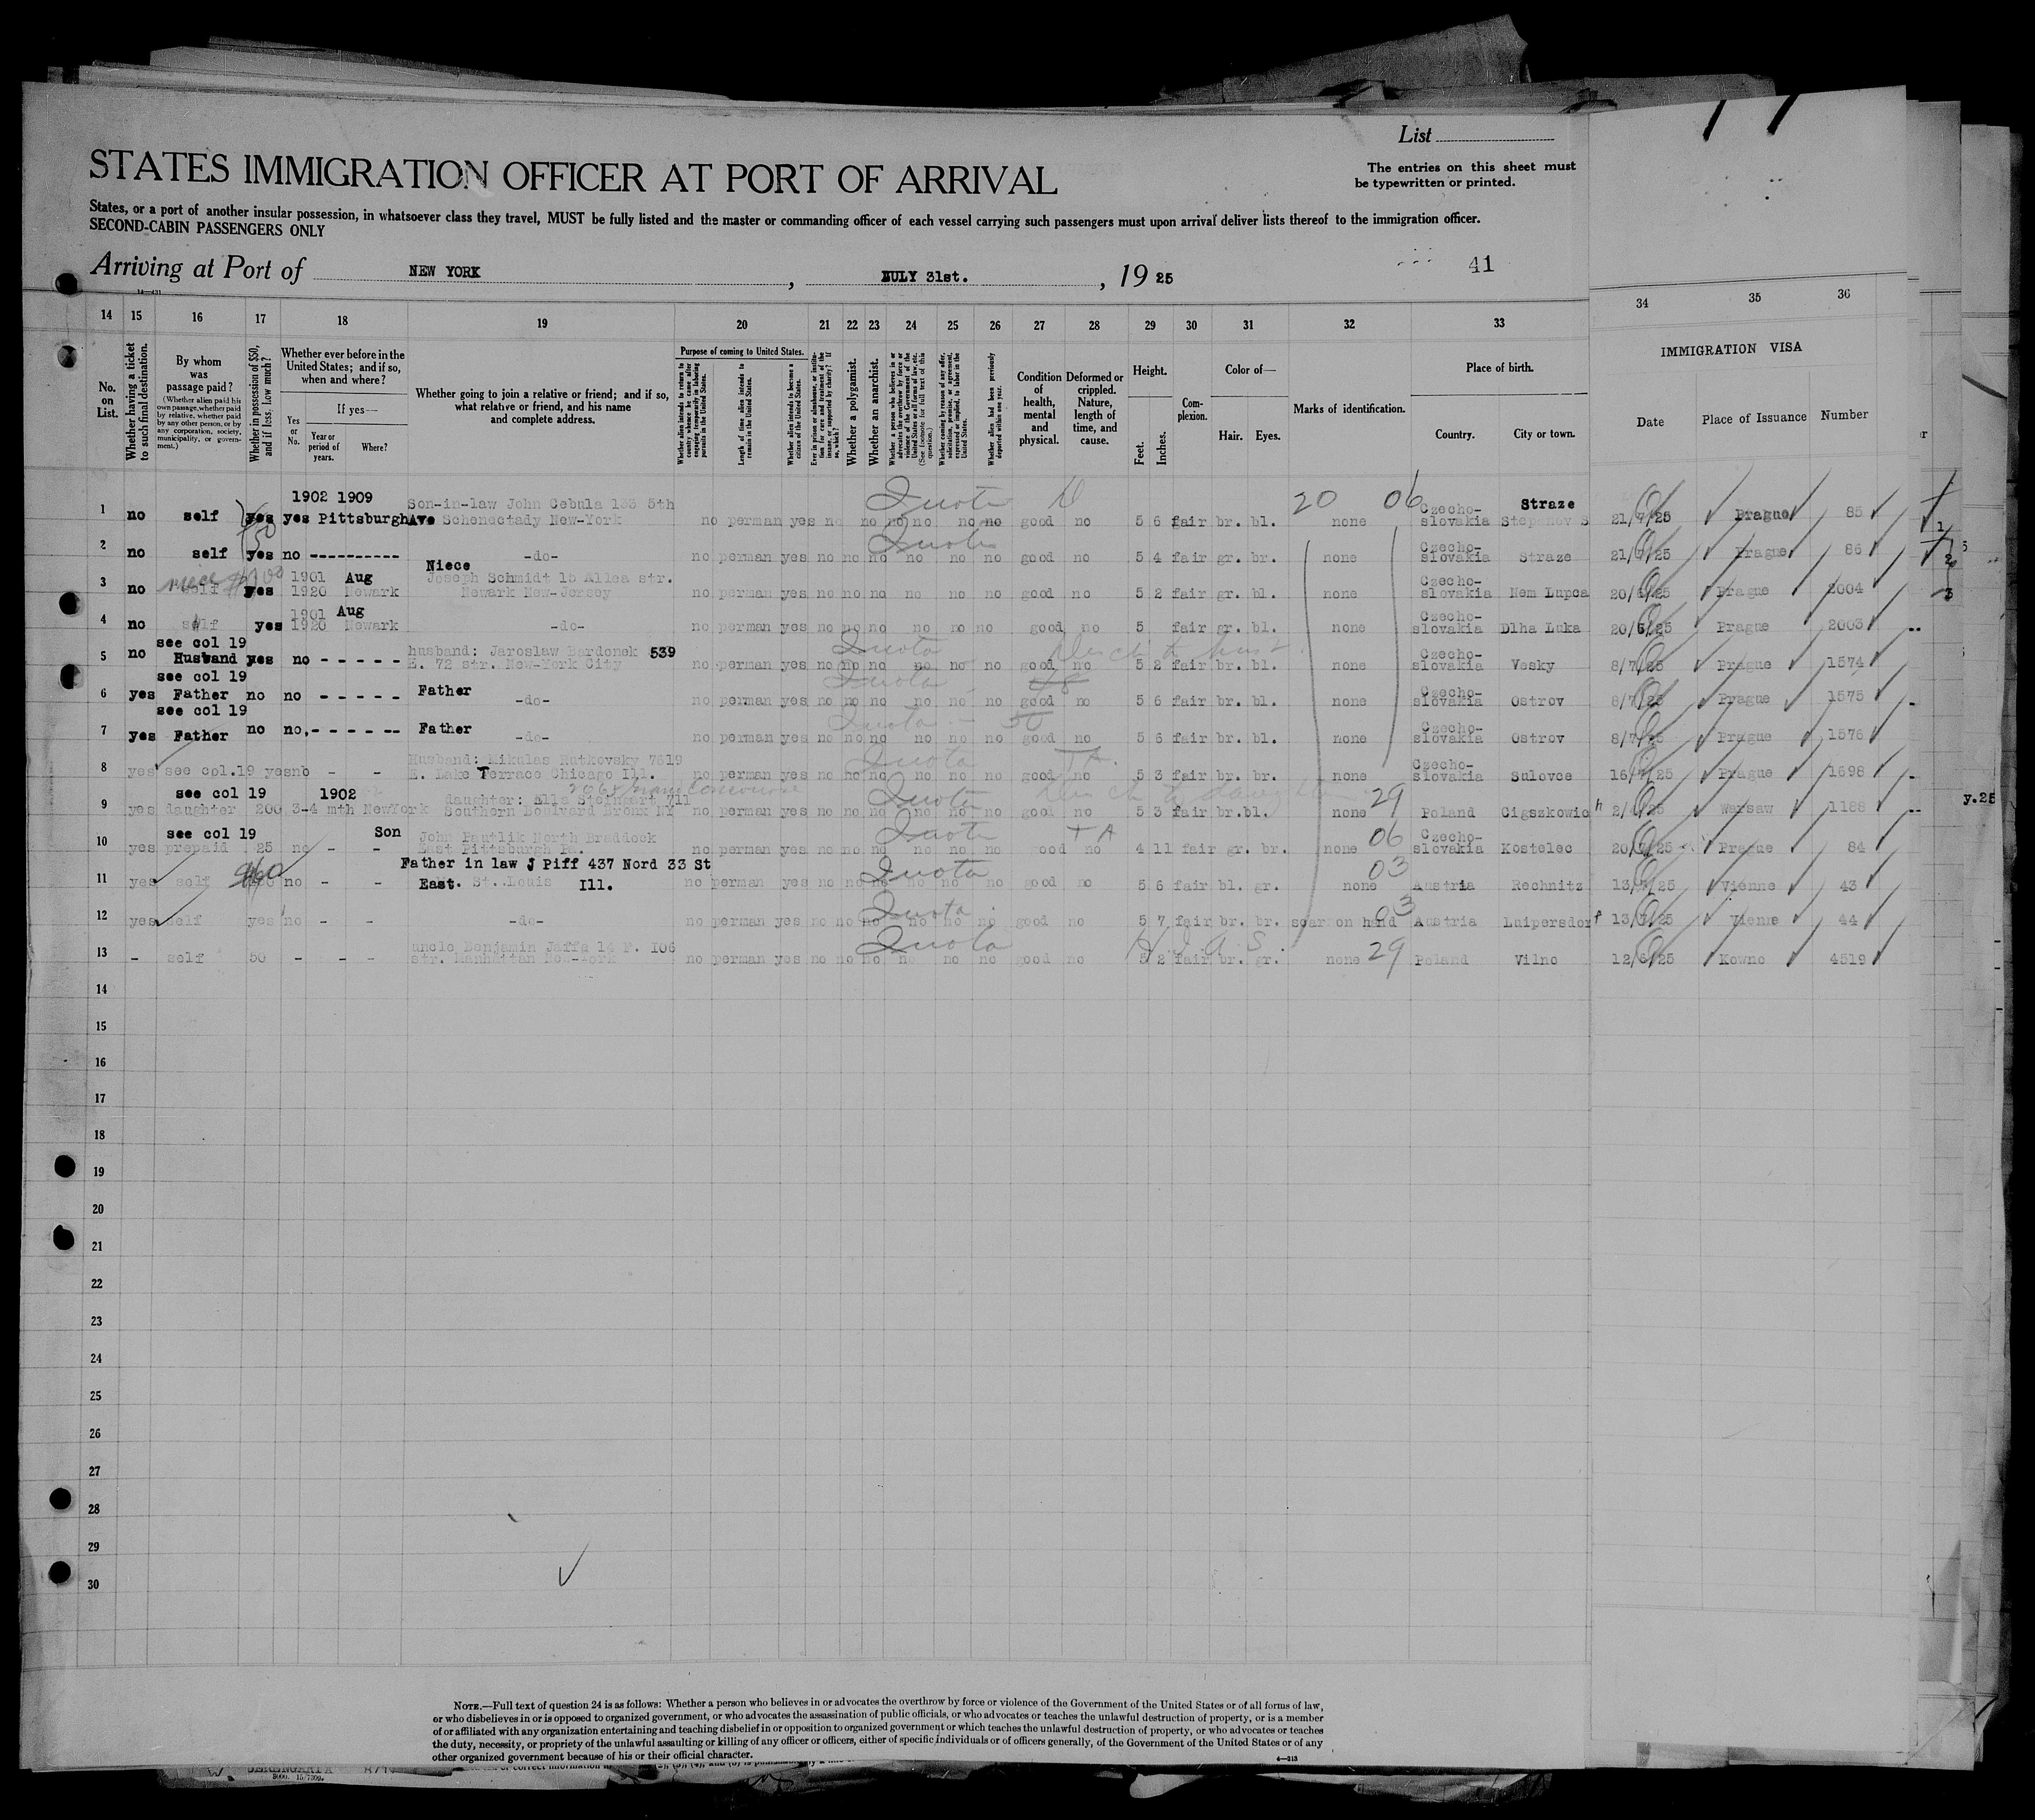 List
STATES IMMIGRATION OFFICER AT PORT OF ARRIVAL
The entries on this sheet must
be typewritten or printed.
States, or a port of another insular possession, in whatsoever class they travel, MUST be fully listed and the master or commanding officer of each vessel carrying such passengers must upon arrival deliver lists thereof to the immigration officer.
SECOND-CABIN PASSENGERS ONLY
Arriving at Port of NEW YORK, JULY 31st., 19 25
41
14 15 16 17 18 19 20 21 22 23 24 25 26 27 28 29 30 31 32 33 34 35 36
No. on List.
Whether having a ticket to such final destination.
By whom was passage paid?
(Whether alien paid his own passage, whether paid by relative, whether paid by any other person, or by any corporation, society, municipality, or government.)
Whether in possession of $50, and if less, how much?
Whether ever before in the United States; and if so, when and where?
Yes or No.
If yes—
Year or period of years.
Where?
Whether going to join a relative or friend; and if so, what relative or friend, and his name and complete address.
Purpose of coming to United States.
Whether alien intends to return to country whence he came after engaging temporarily in laboring pursuits in the United States.
Length of time alien intends to remain in the United States.
Whether alien intends to become a citizen of the United States.
Ever in prison or almshouse, or institution for care and treatment of the insane, or supported by charity? If so, which?
Whether a polygamist.
Whether an anarchist.
Whether a person who believes in or advocates the overthrow by force or violence of the Government of the United States or all forms of law, etc. (See footnote for full text of this question.)
Whether coming by reason of any offer, solicitation, promise, or agreement, expressed or implied, to labor in the United States.
Whether alien had been previously deported within one year.
Condition of health, mental and physical.
Deformed or crippled. Nature, length of time, and cause.
Height.
Feet. Inches.
Complexion.
Color of—
Hair. Eyes.
Marks of identification.
Place of birth.
Country. City or town.
IMMIGRATION VISA
Date Place of Issuance Number
1902 1909 Son-in-law John Cebula 133 5th Quota 20 06 Czecho- Straze
1 no self yes yes Pittsburgh Ave Schenectady New-York no perman yes no no no no no no good no 5 6 fair br. bl. none slovakia 21/7/25 Prague 85
Quota Czecho-
2 no self yes no ---------- -do- no perman yes no no no no no no good no 5 4 fair gr. br. none slovakia Straze 21/7/25 Prague 86
Niece
niece 1901 Aug Joseph Schmidt 15 Allea str. Czecho-
3 no self yes 1920 Newark Newark New-Jersey no perman yes no no no no no no good no 5 2 fair gr. bl. none slovakia Nem Lupca 20/6/25 Prague 2004
1901 Aug Czecho-
4 no self yes 1920 Newark -do- no perman yes no no no no no no good no 5 fair gr. bl. none slovakia Dlha Luka 20/6/25 Prague 2003
see col 19 husband: Jaroslaw Bardonek 539 Quota Czecho-
5 no Husband yes no ----- E. 72 str. New-York City no perman yes no no no no no no good no 5 2 fair br. bl. none slovakia Vesky 8/7/25 Prague 1574
see col 19 Quota Czecho-
6 yes Father no no ----- Father -do- no perman yes no no no no no no good no 5 6 fair br. bl. none slovakia Ostrov 8/7/25 Prague 1575
see col 19 Quota Czecho-
7 yes Father no no.------ Father -do- no perman yes no no no no no no good no 5 6 fair br. bl. none slovakia Ostrov 8/7/25 Prague 1576
Husband: Mikulas Rutkovsky 7619 Quota Czecho-
8 yes see col.19 yes no - - E. Lake Terrace Chicago Ill. no perman yes no no no no no no good no 5 3 fair br. br. none slovakia Sulovce 16/7/25 Prague 1698
see col 19 1902 daughter: Ella Steinhart 711 Quota 29
9 yes daughter 200 3-4 mth NewYork Southern Boulvard Bronx NY no perman yes no no no no no no good no 5 3 fair br.bl. none Poland Cigszkowich 2/ /25 Warsaw 1188
see col 19 Son John Pautlik North Braddock Quota T A 06 Czecho-
10 yes prepaid 25 no - - East Pittsburgh Pa. no perman yes no no no no no no good no 4 11 fair gr. br. none slovakia Kostelec 20/7/25 Prague 84
Father in law J Piff 437 Nord 33 St Quota 03
11 yes self no - - East. St. Louis Ill. no perman yes no no no no no no good no 5 6 fair bl. gr. none Austria Rechnitz 13/7/25 Vienne 43
Quota 03
12 yes self yes no - - -do- no perman yes no no no no no no good no 5 7 fair br. br. scar on hand Austria Luipersdorf 13/7/25 Vienne 44
uncle Benjamin Jaffa 14 P. 106 Quota H I A S 29
13 - self 50 - - - str. Manhattan New-York no perman yes no no no no no no good no 5 2 fair br. gr. none Poland Vilno 12/6/25 Kowno 4519
14
15
16
17
18
19
20
21
22
23
24
25
26
27
28
29
30
y.25
NOTE.—Full text of question 24 is as follows: Whether a person who believes in or advocates the overthrow by force or violence of the Government of the United States or of all forms of law,
or who disbelieves in or is opposed to organized government, or who advocates the assassination of public officials, or who advocates or teaches the unlawful destruction of property, or is a member
of or affiliated with any organization entertaining and teaching disbelief in or opposition to organized government or which teaches the unlawful destruction of property, or who advocates or teaches
the duty, necessity, or propriety of the unlawful assaulting or killing of any officer or officers, either of specific individuals or of officers generally, of the Government of the United States or of any
other organized government because of his or their official character.